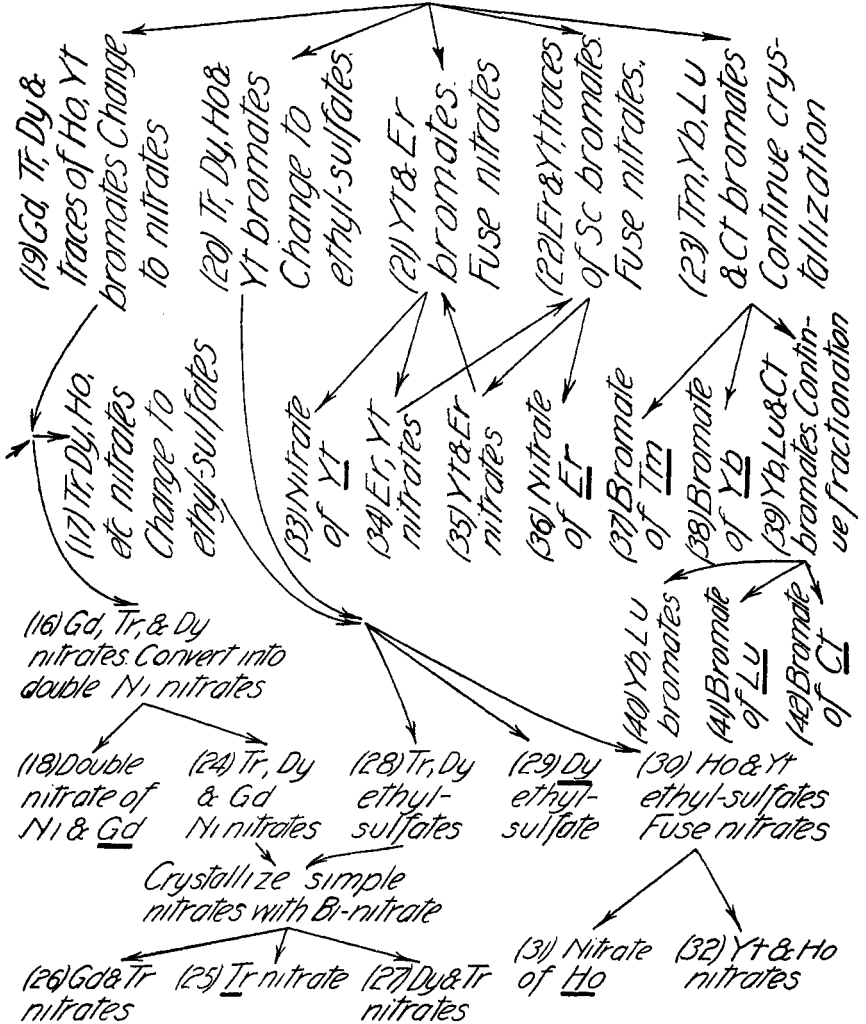 (19) Gd, Tr, Dy &
traces of Ho, Yt
bromates Change
to nitrates
(20) Tr, Dy, Ho &
Yt bromates
Change to
ethyl-sulfates.
(21) Yt & Er
bromates.
Fuse nitrates
(22) Er & Yt, traces
of Sc bromates.
Fuse nitrates.
(23) Tm, Yb, Lu
& Ct bromates
Continue crys-
tallization
(17) Tr, Dy, Ho,
etc nitrates
Change to
ethyl-sulfates
(33) Nitrate
of Yt
(34) Er, Yt
nitrates
(35) Yt & Er
nitrates
(36) Nitrate
of Er
(37) Bromate
of Tm
(38) Bromate
of Yb
(39) Yb, Lu & Ct
bromates. Contin-
ue fractionation
(40) Yb, Lu
bromates
(41) Bromate
of Lu
(42) Bromate
of Ct
(16) Gd, Tr, & Dy
nitrates. Convert into
double Ni nitrates
(18) Double
nitrate of
Ni & Gd
(24) Tr, Dy
& Gd
Ni nitrates
(28) Tr, Dy
ethyl-
sulfates
(29) Dy
ethyl-
sulfate
(30) Ho & Yt
ethyl-sulfates
Fuse nitrates
Crystallize simple
nitrates with Bi-nitrate
(26) Gd & Tr
nitrates
(25) Tr nitrate
(27) Dy & Tr
nitrates
(31) Nitrate
of Ho
(32) Yt & Ho
nitrates